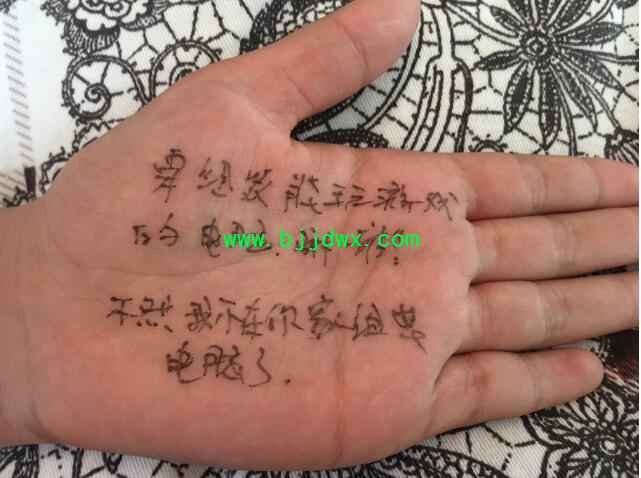 要组装能玩游戏
的电脑.
www.bjjdwx.com
不然我不在你家组装
电脑了.